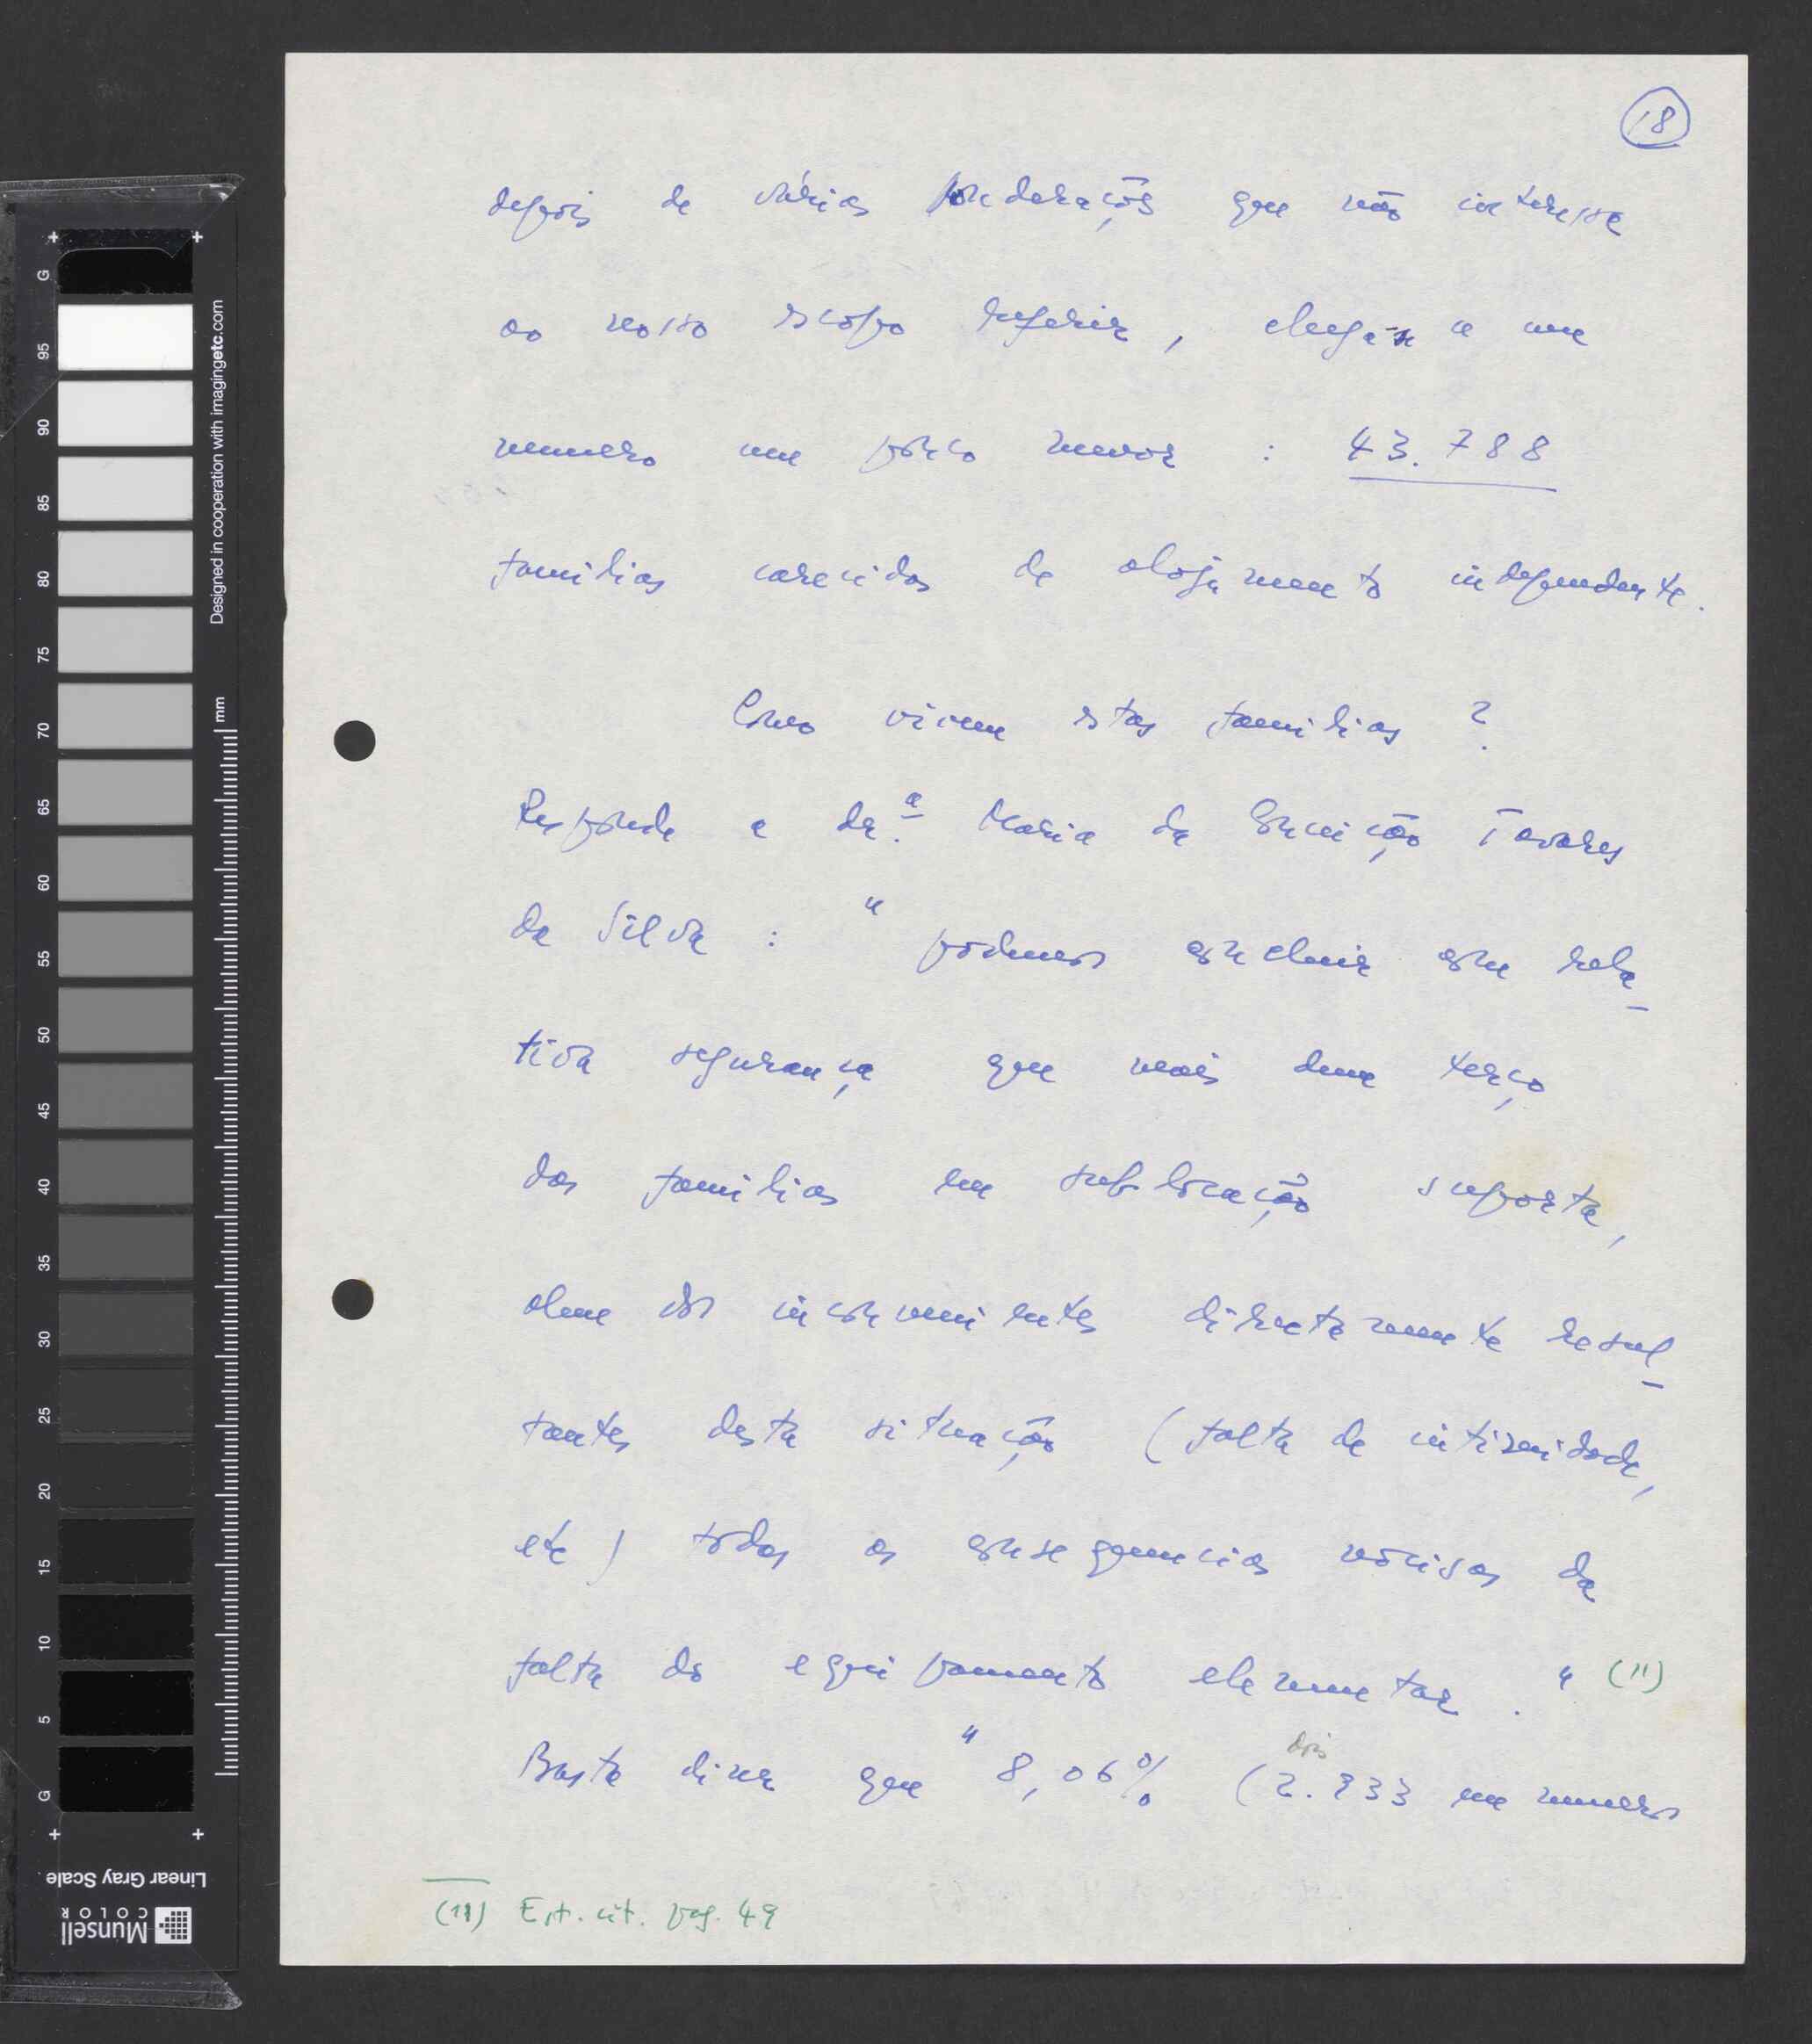 18
depois de várias ponderações que não interessa
ao nosso escopo referir, chega-se a um
numero um pouco menor : 43.788
familias carecidas de alojamento independente.
Como vivem estas familias ?
Responde a dr.ª Maria da Conceição Tavares
da Silva : " podemos concluir com rela-
tiva segurança que mais dum terço
das familias em sublocação suporta,
alem dos inconvenientes directamente resul-
tantes desta situação (falta de intimidade,
etc) todas as consequencias nocivas da
falta do equipamento elementar . " (11)
dois
Basta dizer que " 8,06% (2.933 em numeros
(11) Est. cit. pag. 49
G
95
90
85
80
75
70
65
60
55
50
45
40
35
30
25
20
15
10
5
G
mm
Designed in cooperation with imagingetc.com
Linear Gray Scale
Munsell
COLOR